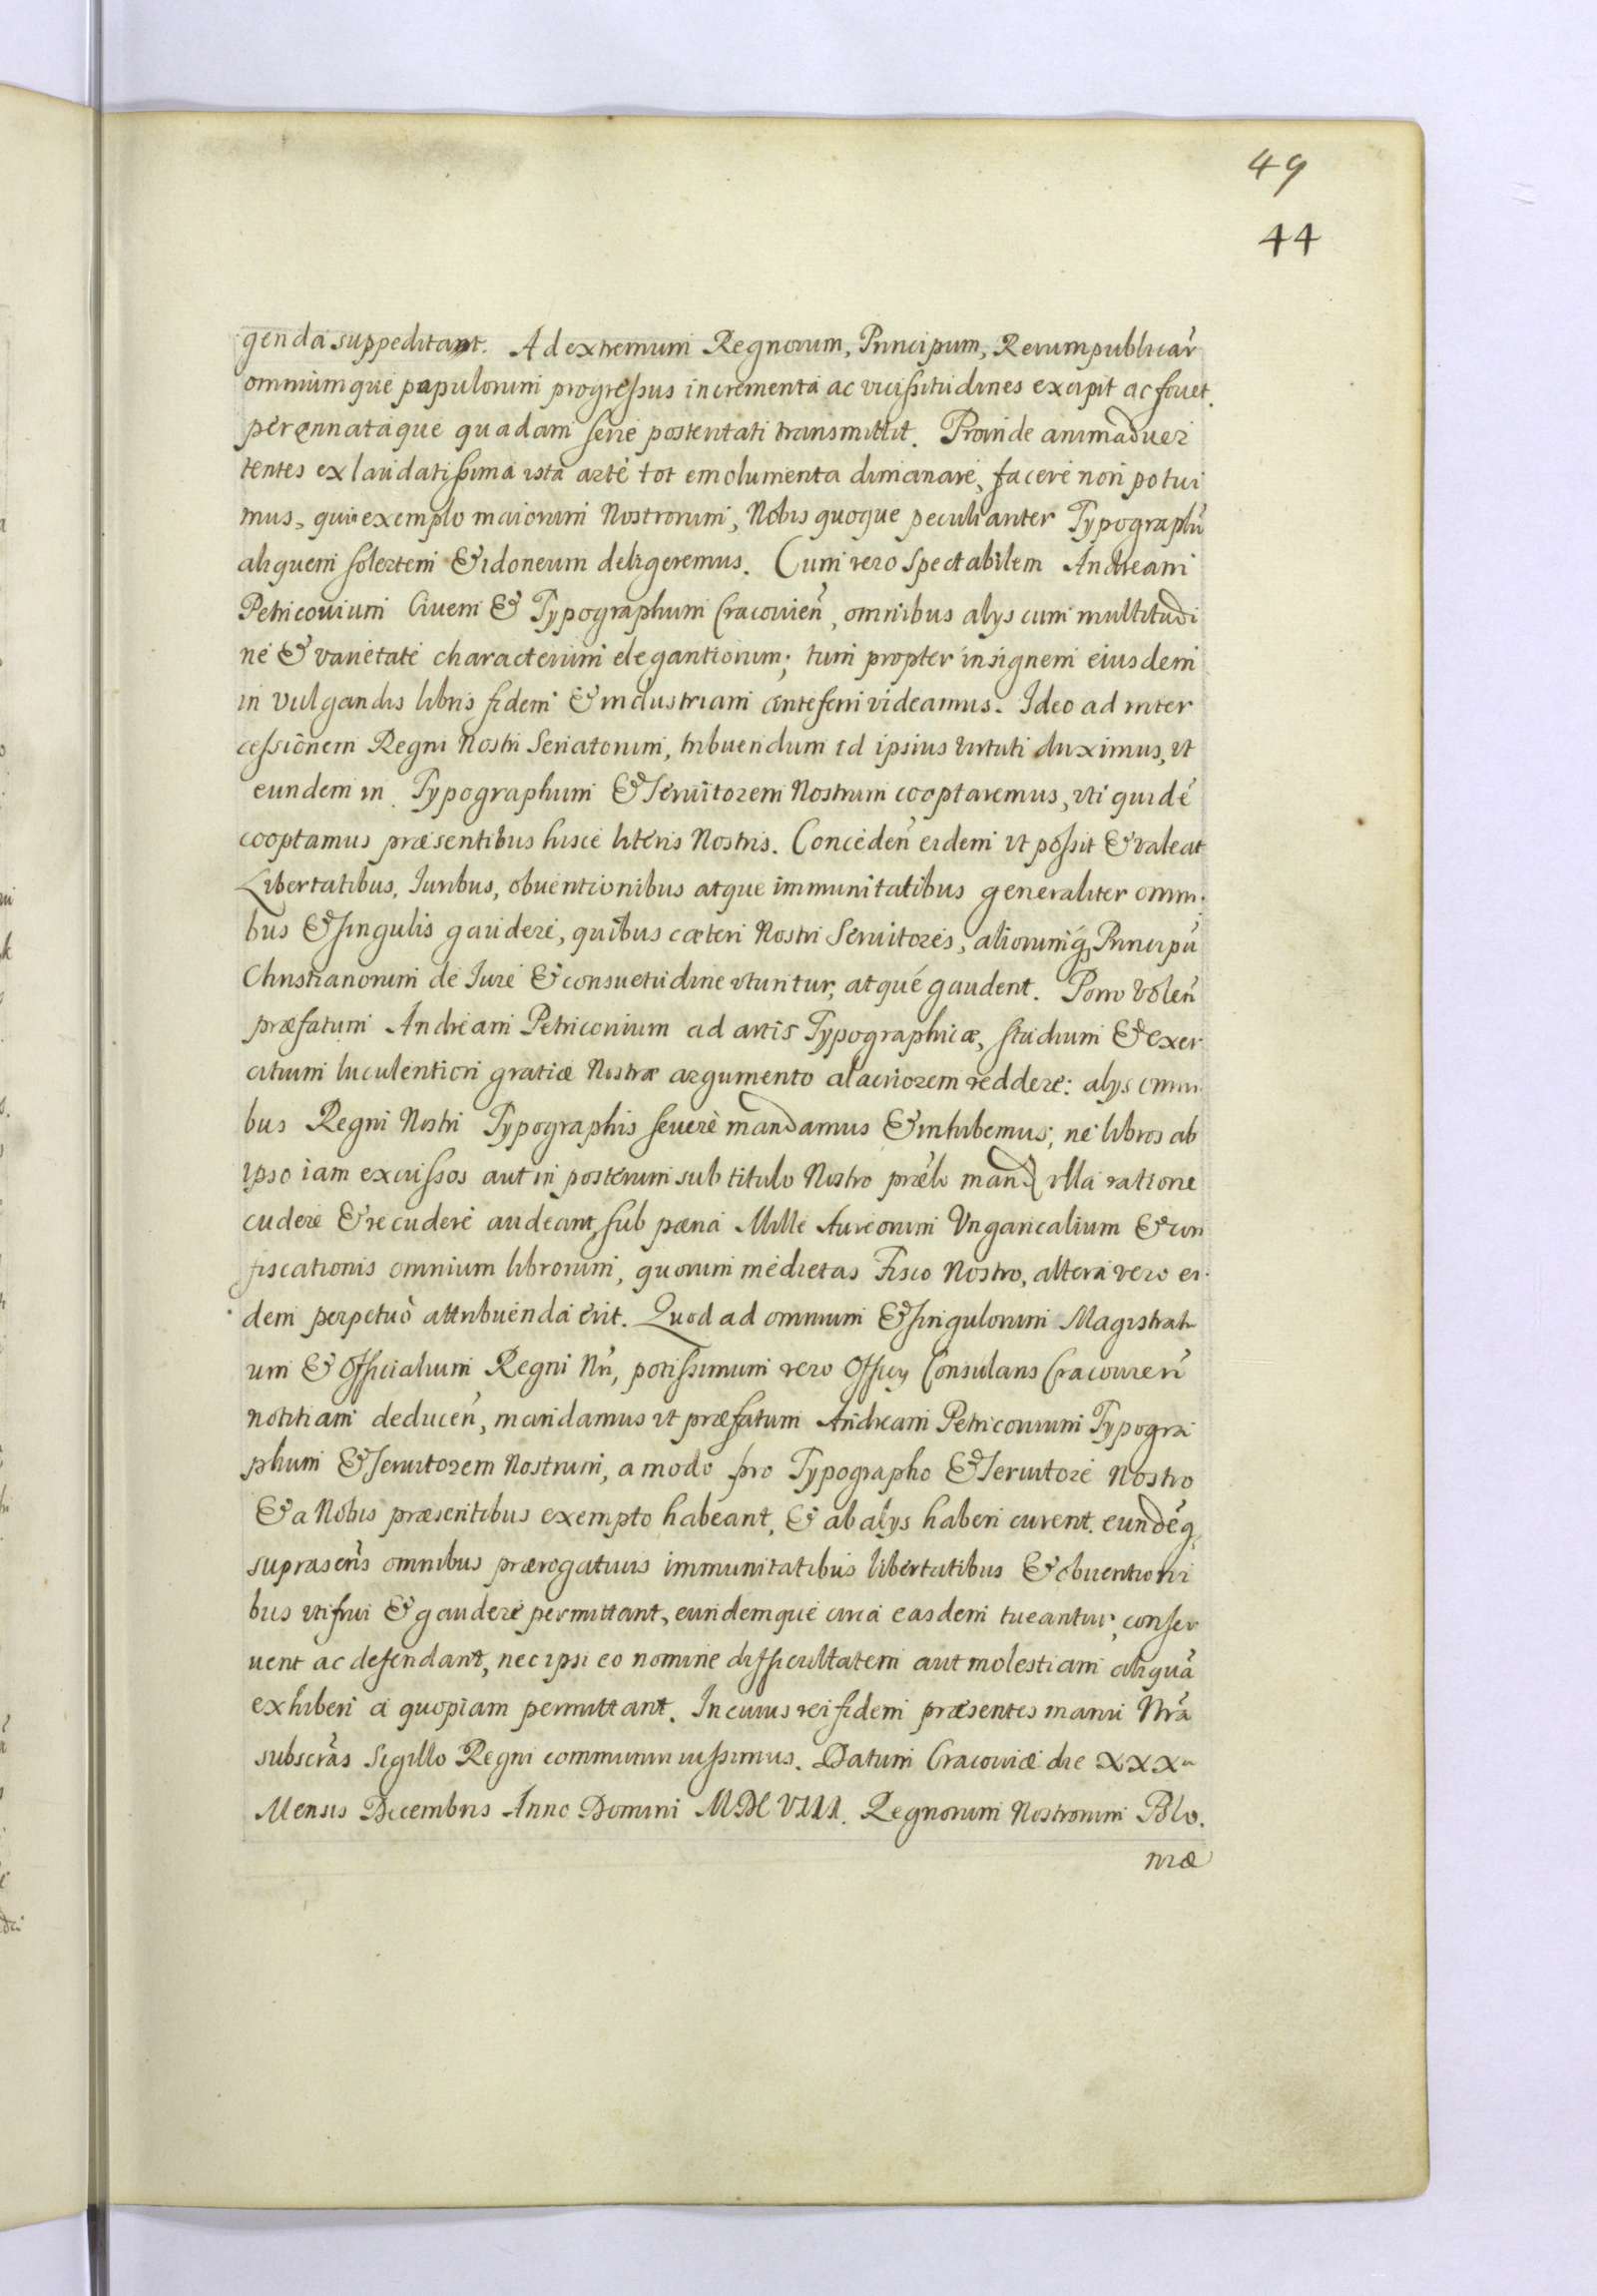 49
44
genda suppeditant. Ad extremum Regnorum, Principum, Rerumpublicar̃
omniumque papulorum progreſsus incrementa ac viciſsitudines excipit ac fouet.
perennataque quadam serie posteritati transmittit. Proinde animaduer
tentes ex laudatiſsima ista arte tot emolumenta dimanare, facere non potui
mus, quin exemplo maiorum Nostrorum, Nobis quoque peculiariter Typographũ
aliquem solertem & idoneum deligeremus. Cum vero Spectabilem Andream
Petricouium Ciuem & Typographum Cracouieñ, omnibus alys cum multitudi
ne & varietate characterum elegantiorum; tum propter insignem eiusdem
in vulgandis libris fidem & industriam anteferri videamus. Ideo ad inter
ceſsionem Regni Nostri Senatorum, tribuendum id ipsius virtuti duximus, vt
eundem in Typographum & Seruitorem Nostrum cooptaremus, vti quidẽ
cooptamus præsentibus hisce literis Nostris. Concedeñ eidem vt poſsit & valeat
Libertatibus, Iuribus, obuentionibus atque immunitatibus generaliter omni.
bus & singulis gaudere, quibus cæteri Nostri Seruitores, aliorumq́ Principũ
Christianorum de Iure & consuetudine vtuntur, atque gaudent. Porro Voleñ
præfatum Andream Petricouium ad artis Typographicæ, studium & exer
citium luculentiori gratiæ Nostræ argumento alacriorem reddere: alys omni
bus Regni Nostri Typographis seuere mandamus & inhibemus, ne libros ab
ipso iam excuſsos aut in posterum sub titulo Nostro prælo mand vlla ratione
cudere & recudere audeant, sub pæna Mille Aureorum Vngaricalium & con
fiscationis omnium librorum, quorum medietas Fisco Nostro, altera vero ei.
dem perpetuò attribuenda erit. Quod ad omnium & singulorum Magistratu
um & Officialium Regni Nr̃i, potiſsimum vero Officy Consularis Cracouieñ
notitiam deduceñ, mandamus vt præfatum Andream Petricouium Typogra
phum & Seruitorem Nostrum, a modo pro Typographo & Seruitore Nostro
& a Nobis præsentibus exempto habeant, & ab alys haberi curent. eundẽq́
suprascr̃is omnibus prærogatiuis immunitatibus libertatibus & obuentioni
bus vti frui & gaudere permittant, eundemque circa easdem tueantur, conser
uent ac defendant, nec ipsi eo nomine difficultatem aut molestiam aliquã
exhiberi a quopiam permittant. In cuius rei fidem præsentes manu Nr̃a
subscr̃as Sigillo Regni communiri iuſsimus. Datum Cracouiæ die XXXa
Mensis Decembris Anno Domini MDCVIII. Regnorum Nostrorum Polo.
niæ